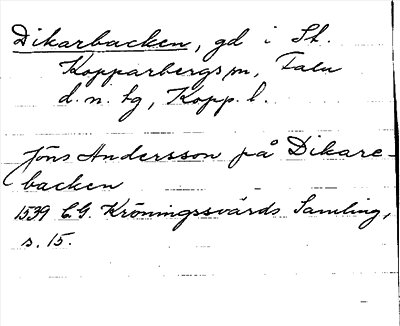 Dikarbacken, gd i St.
Kopparbergs sn, Falu
d. n. tg, Kopp. l.
Jöns Andersson på Dikare-
backen
1539 C. G. Kröningssvärds Samling,
s. 15.